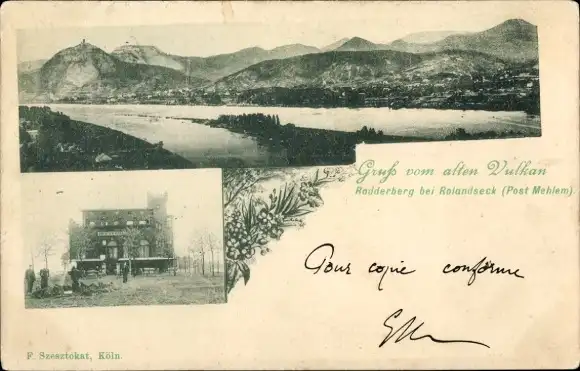 Gruß vom alten Vulkan
Rodderberg bei Rolandseck (Post Mehlem)
Pour copie conforme
F. Szesztokat, Köln.